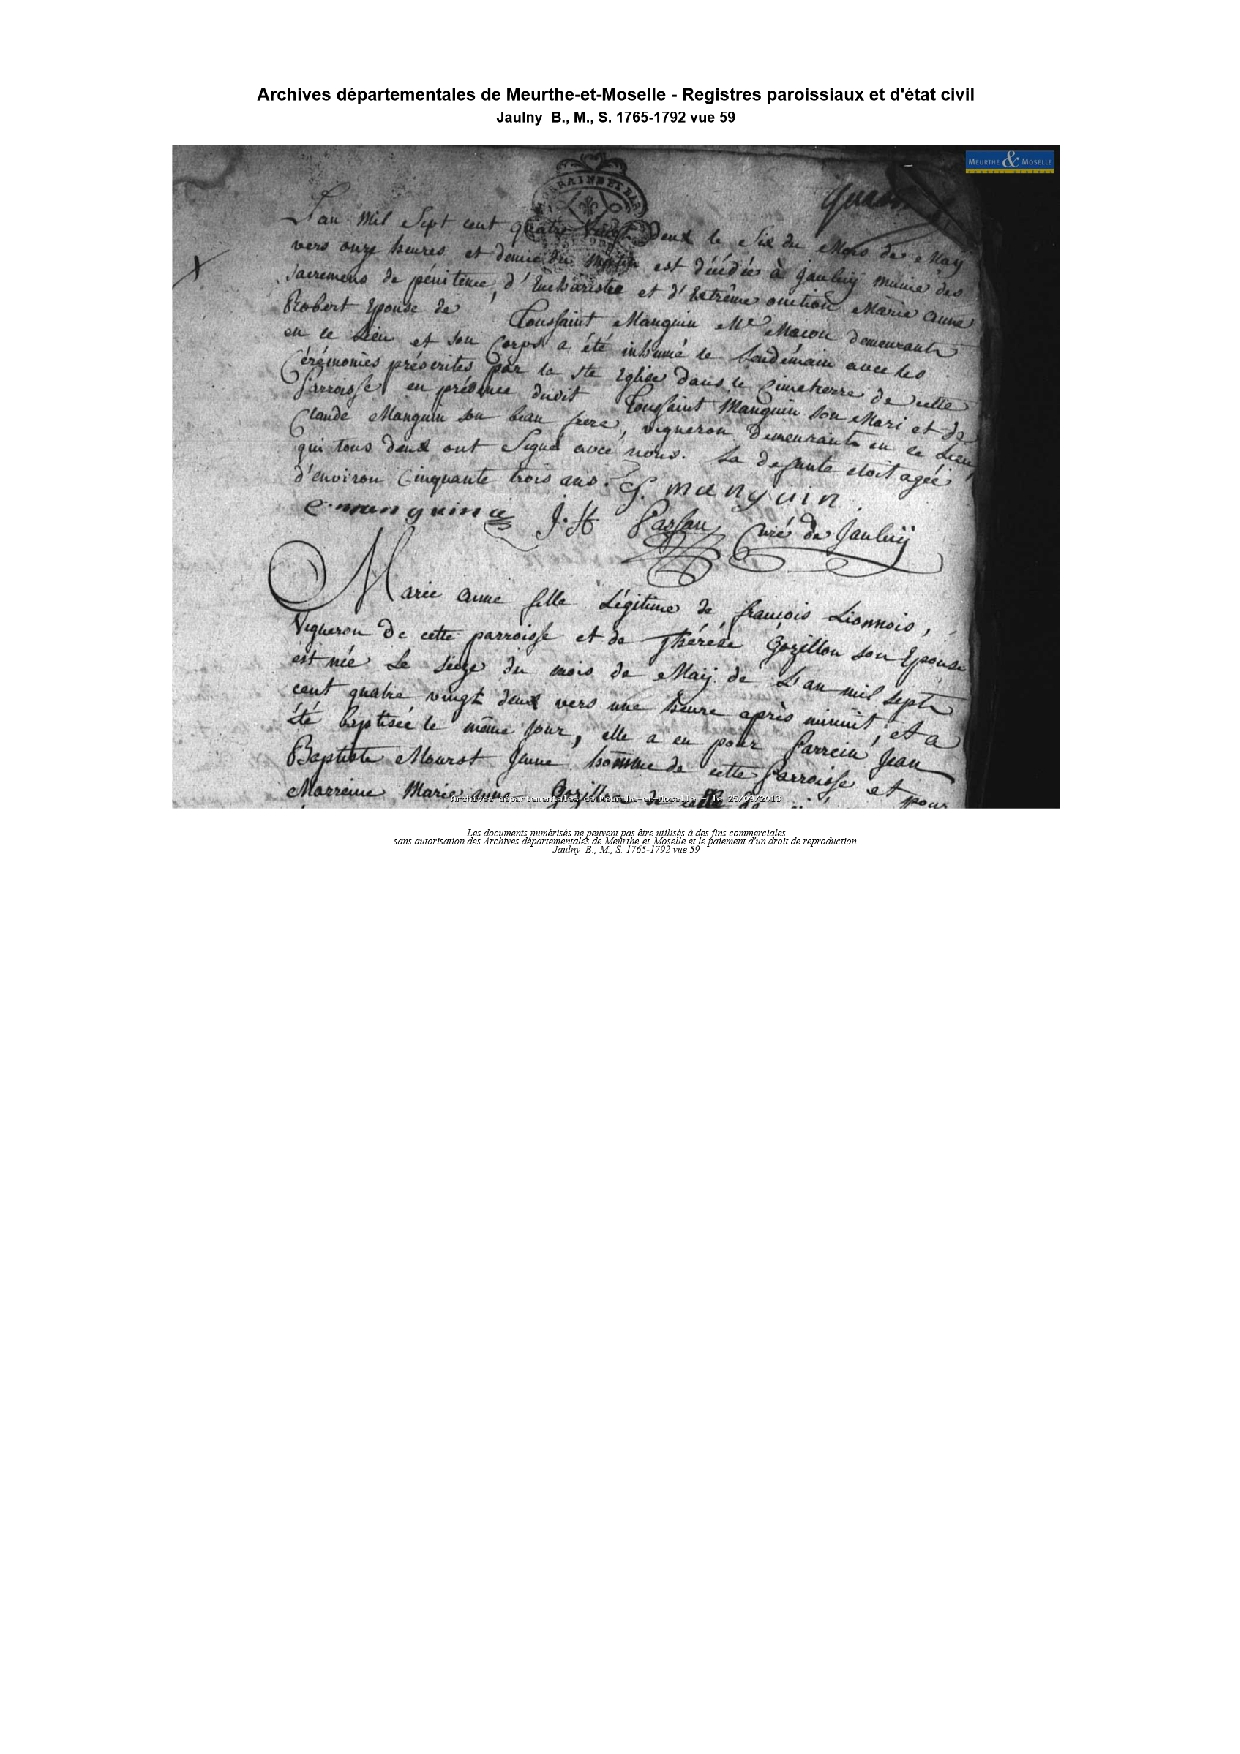 Archives départementales de Meurthe-et-Moselle - Registres paroissiaux et d'état civil
Jaulny B., M., S. 1765-1792 vue 59
MEURTHE & MOSELLE
L'an Mil Sept cent quatre vingt Deux le Six du Mois de May
vers onze heures et demie du matin est décédée à Jaulny munie des
sacremens de pénitence, d'Eucharistie et d'Extrême onction Marie anne
Robert Epouse de Toussaint Manguin Me Macon demeurants
en ce Lieu et son Corps a été inhumé le Lendemain avec les
Cérémonies préscrites par la Ste Eglise dans le Cimetierre de cette
Parroisse en présence dudit Toussaint Manguin son Mari et de
Claude Manguin son beau frere, vigneron Demeurants en ce Lieu
qui tous deux ont Signé avec nous. La defunte étoit agée
d'environ Cinquante trois ans. manguin
J. H Curé de Jaulny
Marie anne fille Légitime de françois Lionnois,
Vigneron de cette parroisse et de Thérése Gozillon son Epouse
est née le seize du mois de May de L'an mil sept
cent quatre vingt deux vers une heure après minuit, et a
été baptisée le même jour, elle a eu pour Parrein Jean
Baptiste Mourot Jeune homme de cette Parroisse et pour
Marreine Marie anne Gozillon de
Archives départementales de Meurthe-et-Moselle
Les documents numérisés ne peuvent pas être utilisés à des fins commerciales
sans autorisation des Archives départementales de Meurthe et Moselle et le paiement d'un droit de reproduction
Jaulny B., M., S. 1765-1792 vue 59